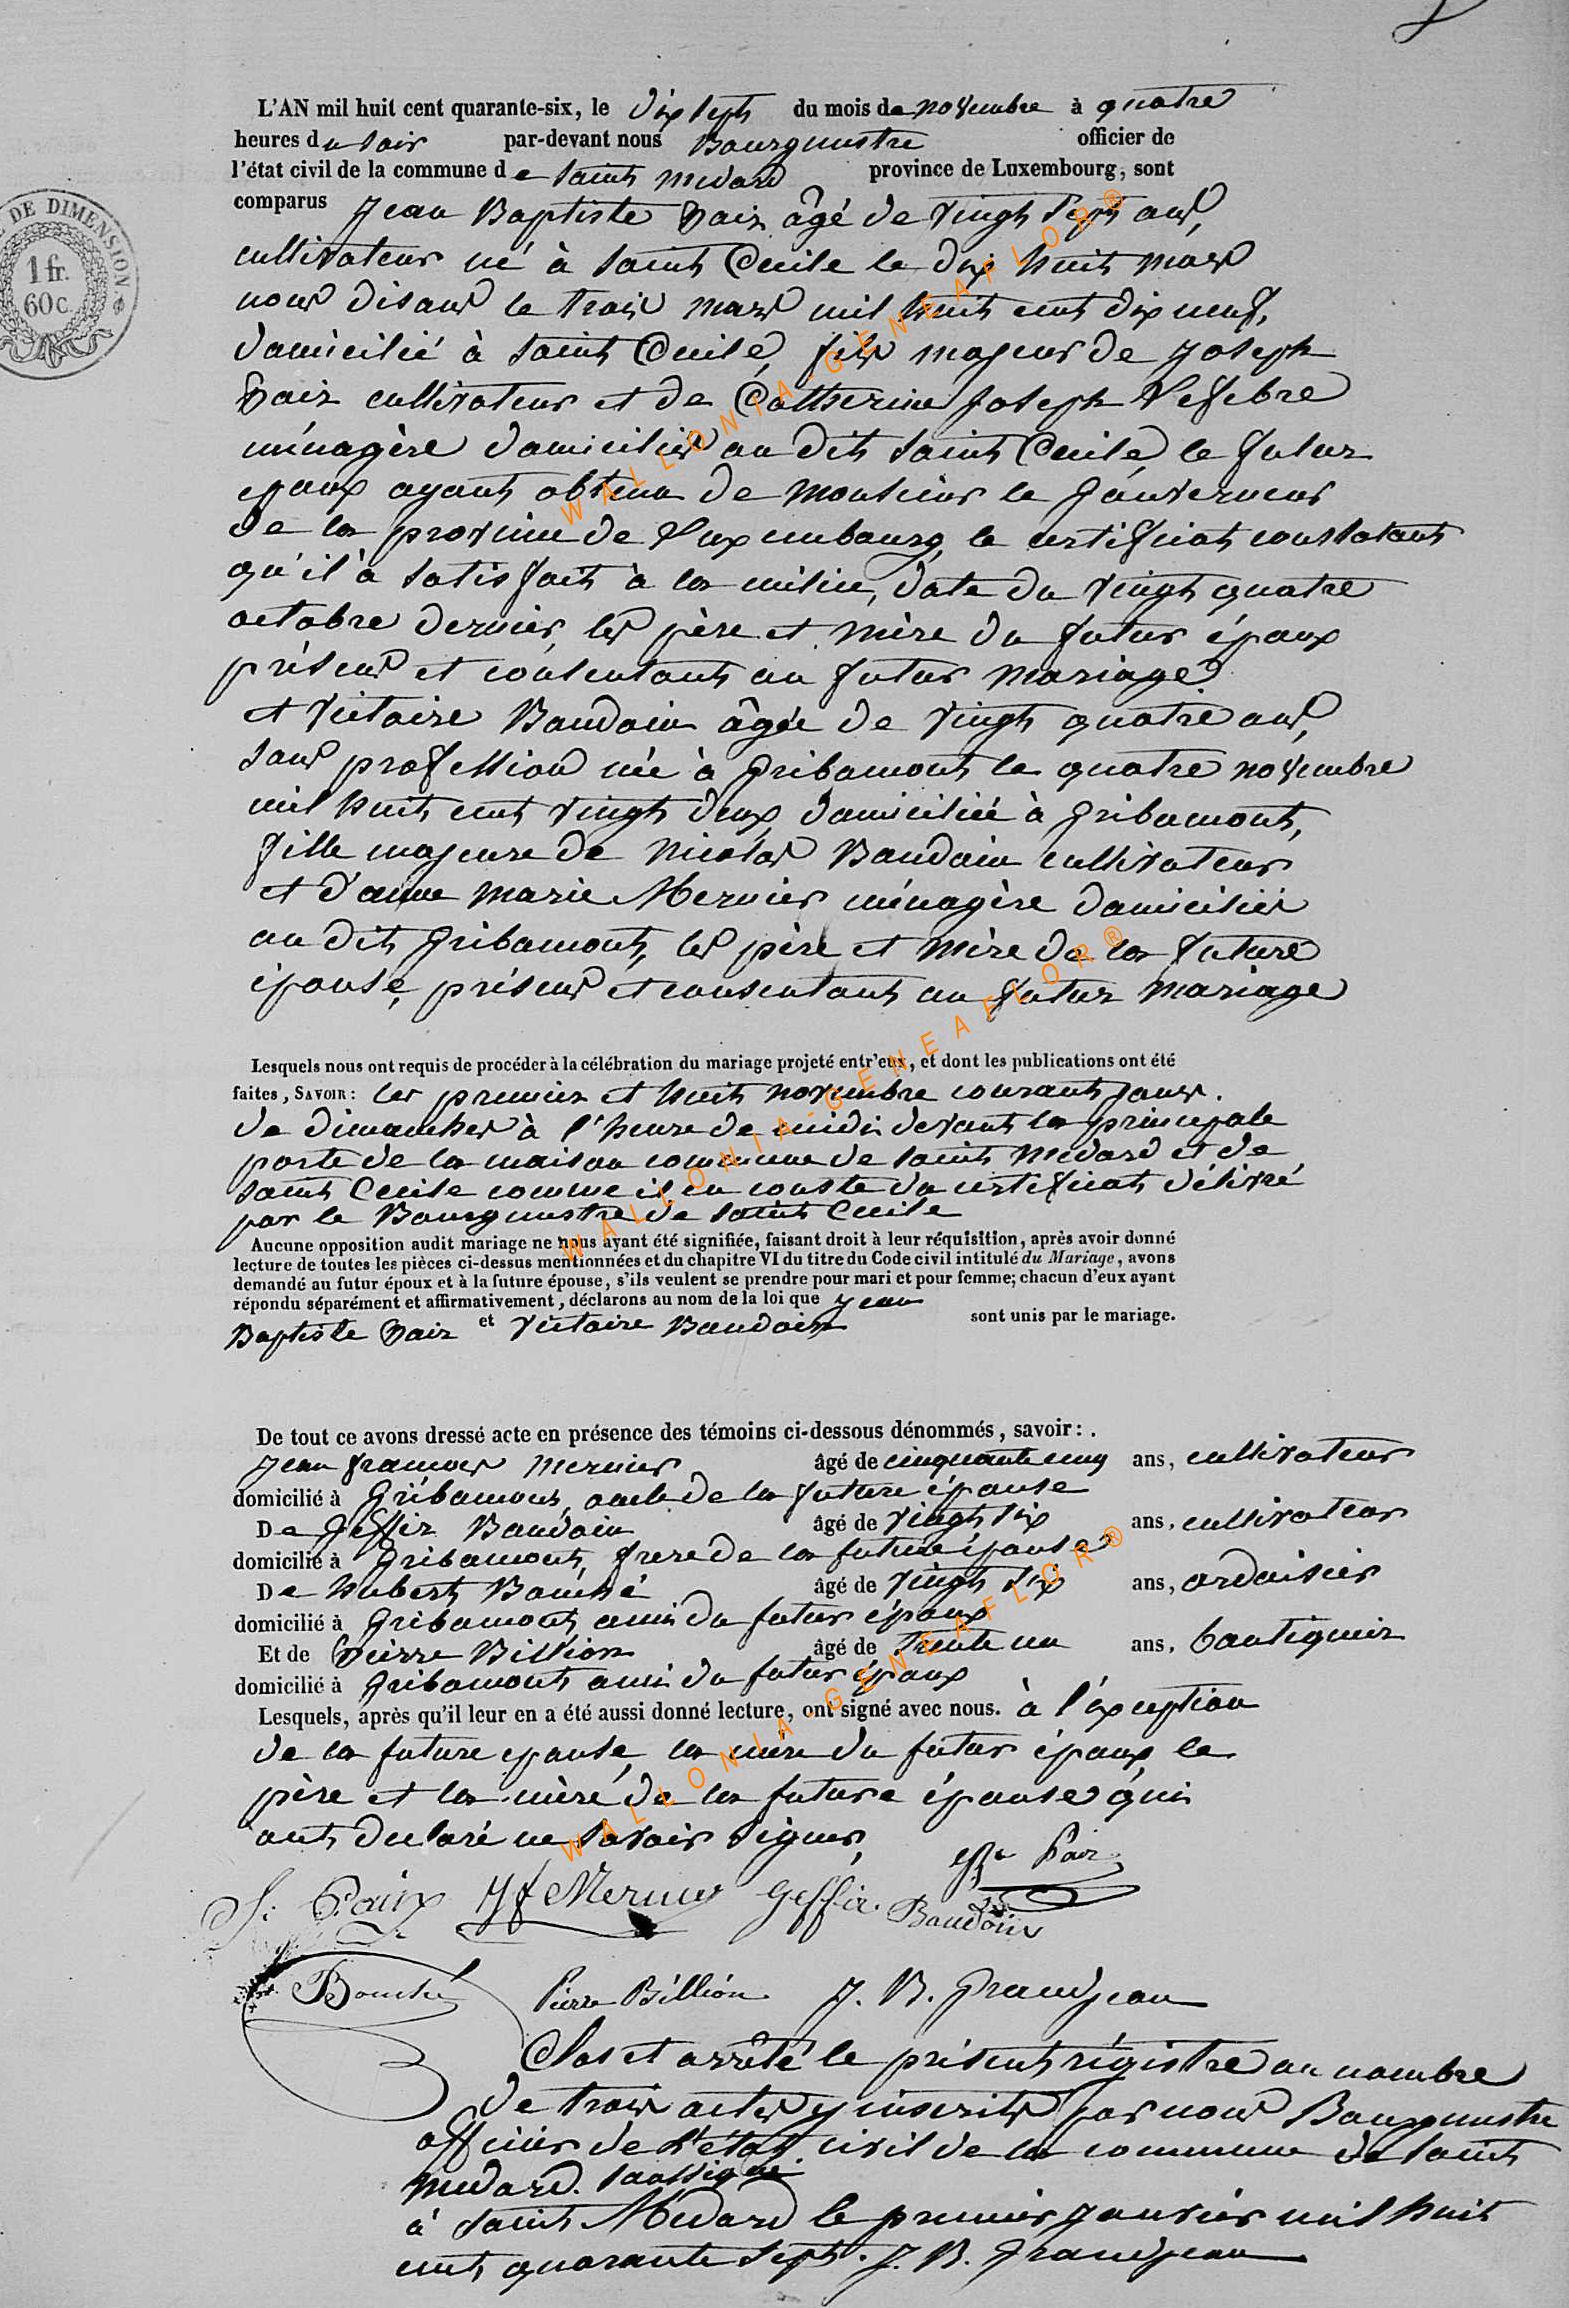 L'AN mil huit cent quarante-six, le dix sept du mois de novembre à quatre
heures du soir par-devant nous Bourgmestre officier de
l'état civil de la commune de Saint Médard province de Luxembourg, sont
comparus Jean Baptiste Pair âgé de vingt sept ans,
DE DIMENSION.
1 fr.
60 c.
cultivateur né à Saint Cecile le dix huit mars
nous disans le trois mars mil huit cent dix neuf,
domicilié à Saint Cecile, fils majeur de Joseph
Pair cultivateur et de Catherine Joseph Lefebre
ménagère domiciliés au dit Saint Cecile, le futur
epoux ayant obtenu de Monsieur le Gouverneur
de la province de Luxembourg le certificat constatant
qu'il a satisfait à la milice, date du vingt quatre
octobre dernier, les père et mère du futur époux
présens et consentants au futur mariage
et Victoire Baudoin âgée de vingt quatre ans,
sans profession née à Gribamont le quatre novembre
mil huit cent vingt deux, domiciliée à Gribamont,
fille majeure de Nicolas Baudoin cultivateur
et d'anne Marie Mernier ménagère domiciliés
au dit Gribamont, les père et mère de la future
épouse, présens et consentant au futur mariage
Lesquels nous ont requis de procéder à la célébration du mariage projeté entr'eux, et dont les publications ont été
faites, SAVOIR: les premier et huit novembre courant jours
de dimanches à l'heure de midi devant la principale
porte de la maison commune de Saint Médard et de
Saint Cecile comme il en conste du certificat délivré
par le Bourgmestre de Saint Cecile
Aucune opposition audit mariage ne nous ayant été signifiée, faisant droit à leur réquisition, après avoir donné
lecture de toutes les pièces ci-dessus mentionnées et du chapitre VI du titre du Code civil intitulé du Mariage, avons
demandé au futur époux et à la future épouse, s'ils veulent se prendre pour mari et pour femme; chacun d'eux ayant
répondu séparément et affirmativement, déclarons au nom de la loi que Jean
Baptiste Pair et Victoire Baudoin sont unis par le mariage.
De tout ce avons dressé acte en présence des témoins ci-dessous dénommés, savoir:
Jean francois Mernier âgé de cinquante cinq ans, cultivateur
domicilié à Gribamont, oncle de la future épouse
De Geffir Baudoin âgé de vingt six ans, cultivateur
domicilié à Gribamont, frere de la future épouse
De Hubert Bouché âgé de vingt six ans, ardoisier
domicilié à Gribamont ami du futur époux
Et de Pierre Billion âgé de Trente un ans, boutiquier
domicilié à Gribamont ami du futur époux
Lesquels, après qu'il leur en a été aussi donné lecture, ont signé avec nous. à l'exception
de la future epouse, la mere du futur époux, le
père et la mère de la future épouse qui
ont declaré ne savoir signer,
Pair
J: Pairx J f Mernier Geffir. Baudoin
Bouché Pierre Billion. J. B. Grandjean
Clos et arrêté le présent régistre au nombre
de trois actes y inscrits par nous Bourgmestre
officier de l'état civil de la commune de Saint
Médard. soussigné
à Saint Médard le premier janvier mil huit
cent quarante sept. J. B. Grandjean
WALLONIA-GENEAFLOR®
WALLONIA-GENEAFLOR®
WALLONIA-GENEAFLOR®